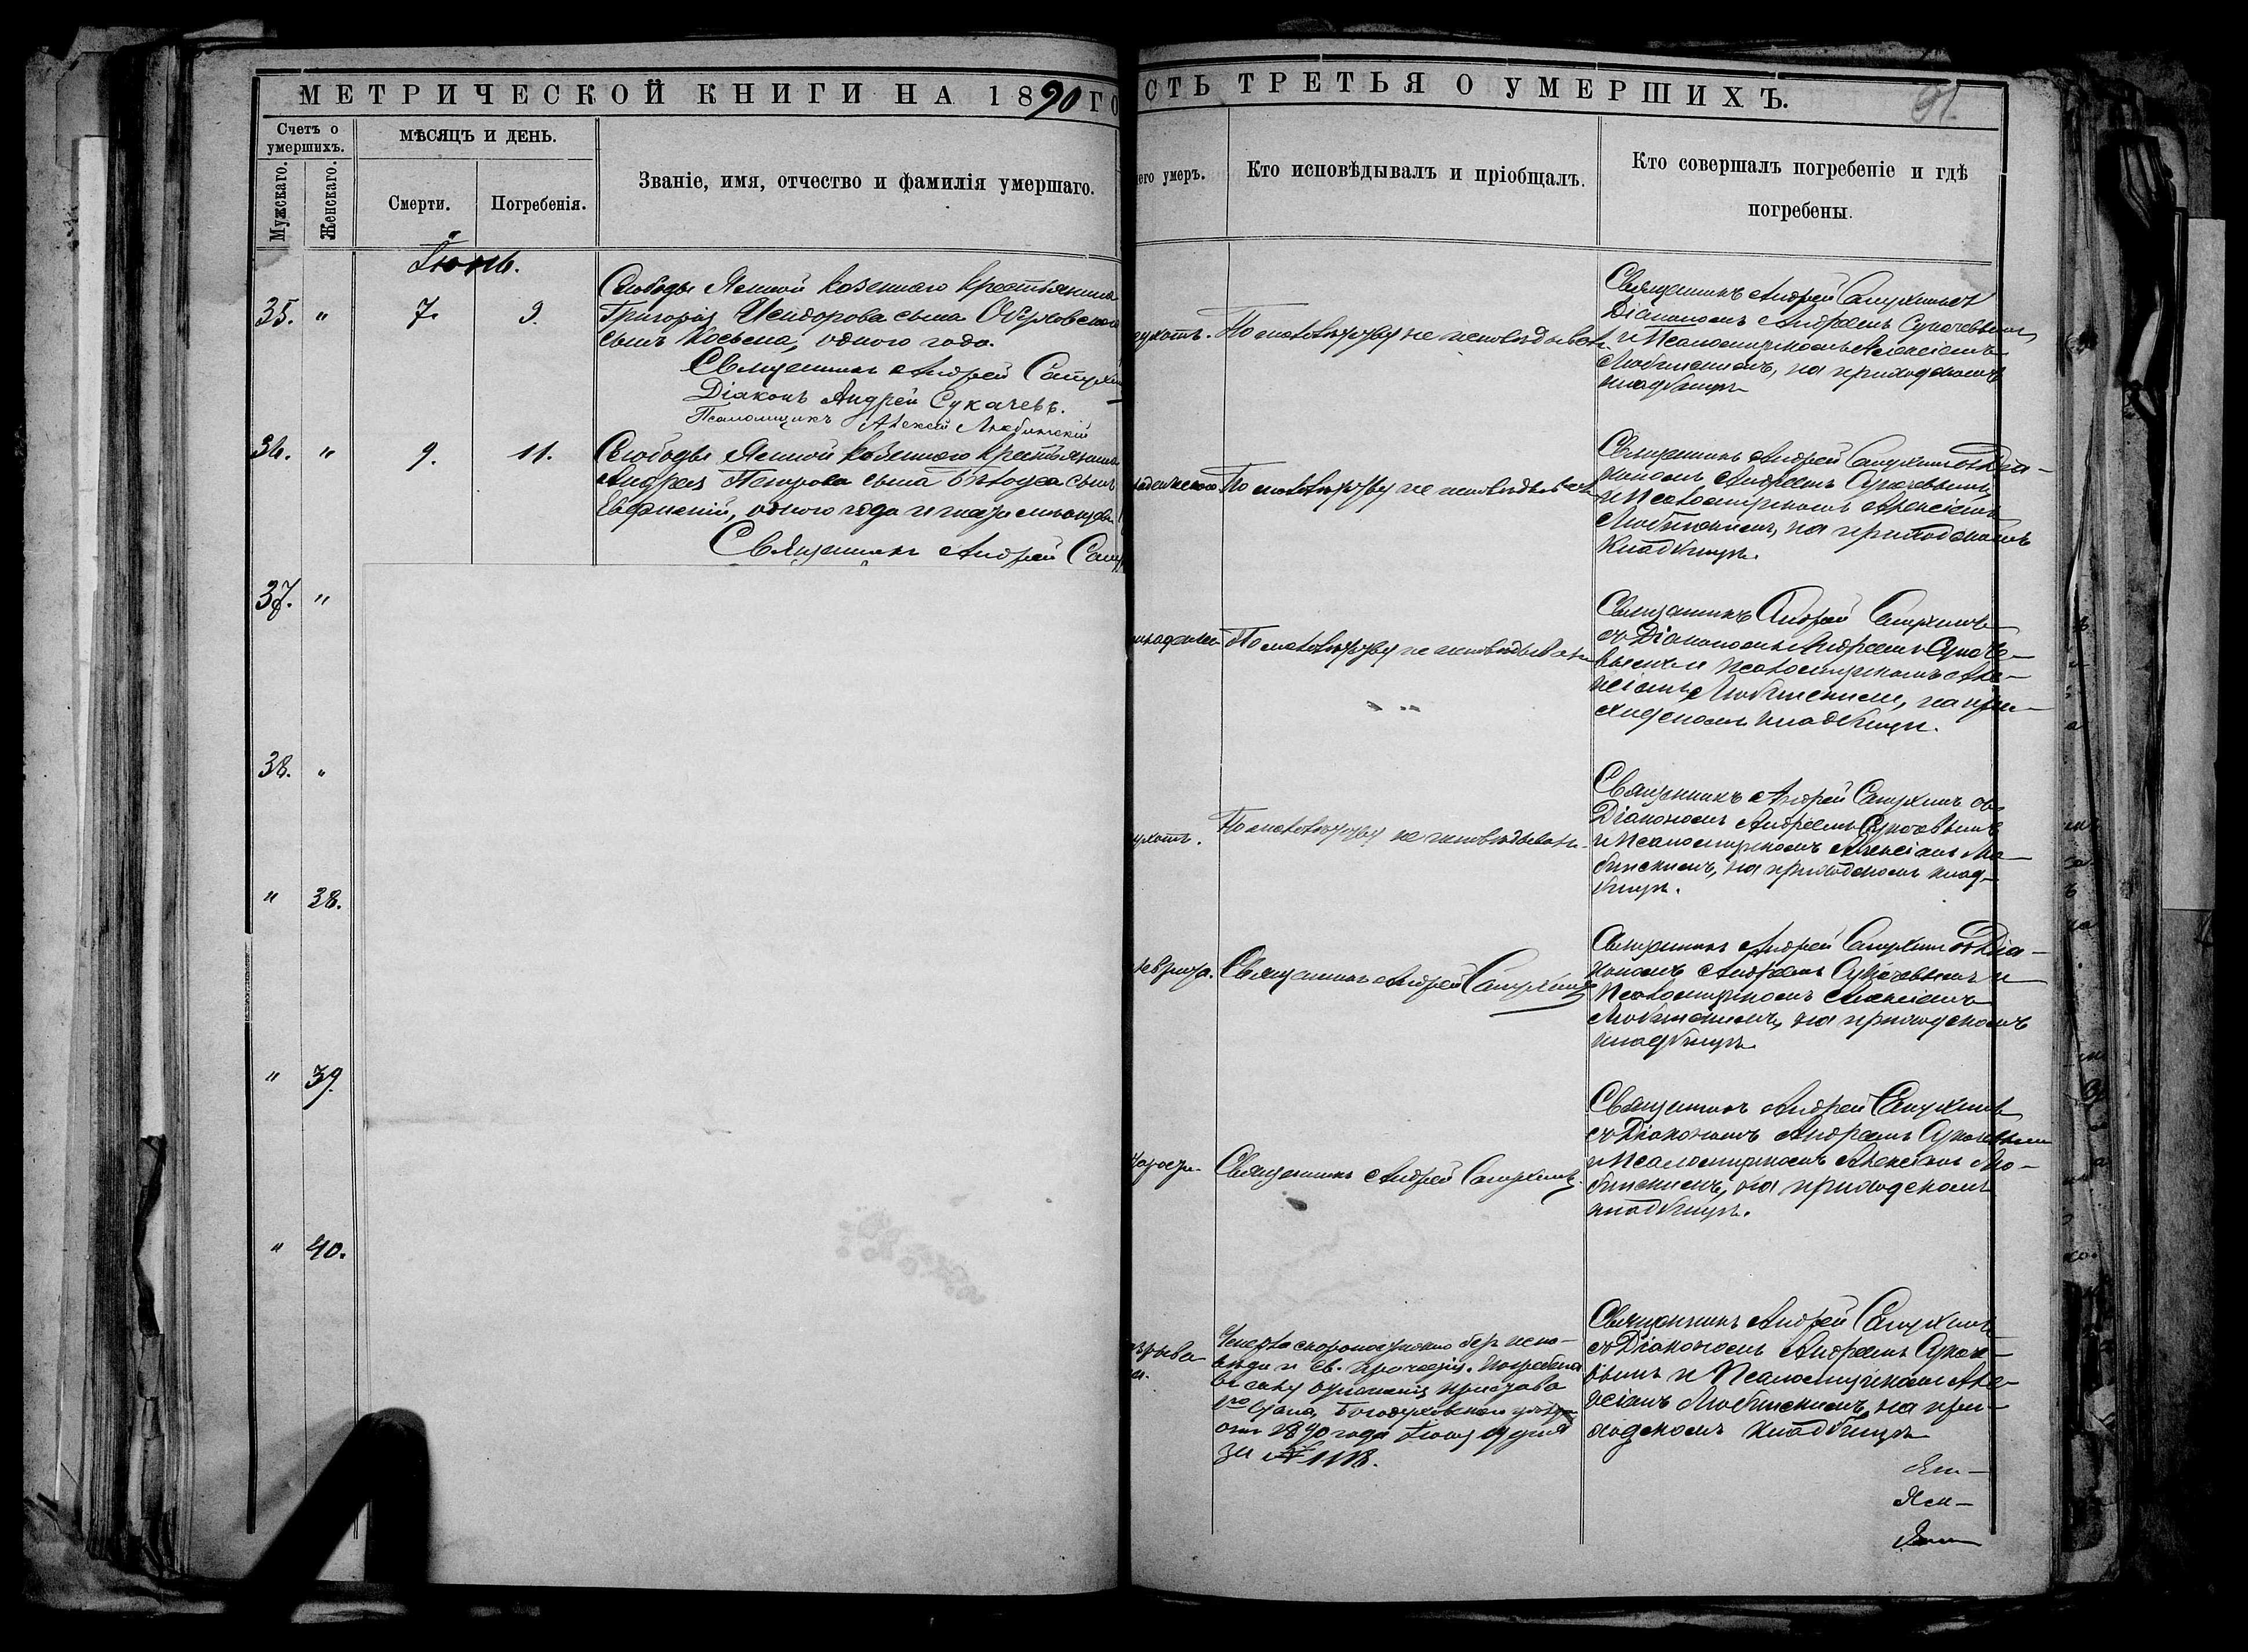 МЕТРИЧЕСКОЙ КНИГИ НА 1890 ГО
Счетъ о умершихъ.
Мужскаго.
Женскаго.
МѢСЯЦЪ И ДЕНЬ.
Смерти.
Погребенія.
Званіе, имя, отчество и фамилія умершаго.
Іюнь.
35. " 7. 9.
Слободы Ясеной казеннаго крестьянина
Григорія Исидорова сына
сынъ Косьма, одного года.
Священникъ Андрей
Діаконъ Андрей Сукачевъ.
Псаломщикъ Алексій Любинскій
36. " 9. 11.
Слободы Ясеной казеннаго крестьянина
Андрея Петрова сына сынъ
Евфимій, одного года и
Священникъ Андрей
37. "
38. "
" 38.
" 39.
" 40.
СТЬ ТРЕТЬЯ О УМЕРШИХЪ.
91
чего умеръ.
Кто исповѣдывалъ и пріобщалъ.
Кто совершалъ погребеніе и гдѣ
погребены.
По малолѣтству не исповѣдыван
Священникъ Андрей Сапухинъ съ
Діакономъ Андреемъ Сукачевымъ
и Псаломщикомъ Алексіемъ
Любинскимъ, на приходскомъ
кладбищѣ
По малолѣтству не исповѣдыван
Священникъ Андрей Сапухинъ съ Діа-
кономъ Андреемъ Сукачевымъ
и Псаломщикомъ Алексіемъ
Любинскимъ, на приходскомъ
кладбищѣ.
По малолѣтству не исповѣдыван
Священникъ Андрей Сапухинъ
съ Діакономъ Андреемъ Сукаче-
вымъ и Псаломщикомъ Але-
ксіемъ Любинскимъ, на при-
ходскомъ кладбищѣ.
По малолѣтству не исповѣдыван.
Священникъ Андрей Сапухинъ съ
Діакономъ Андреемъ Сукачевымъ
и Псаломщикомъ Алексіемъ Лю-
бинскимъ, на приходскомъ клад-
бищѣ.
Священникъ Андрей Сапухинъ
Священникъ Андрей Сапухинъ съ Діа-
кономъ Андреемъ Сукачевымъ и
Псаломщикомъ Алексіемъ
Любинскимъ, на приходскомъ
кладбищѣ
Священникъ Андрей Сапухинъ.
Священникъ Андрей Сапухинъ
съ Діакономъ Андреемъ Сукачевымъ
и Псаломщикомъ Алексіемъ Лю-
бинскимъ, на приходскомъ
кладбищѣ.
Умерла скоропостижно безъ испо-
вѣди и св. причастія. Погребена
въ силу отношенія пристава
1го Стана, Богодуховскаго уѣзда
отъ 1890 года Іюня дня
за № 1118.
Священникъ Андрей Сапухинъ
съ Діакономъ Андреемъ Сукаче-
вымъ и Псаломщикомъ Але-
ксіемъ Любинскимъ, на при-
ходскомъ кладбищѣ